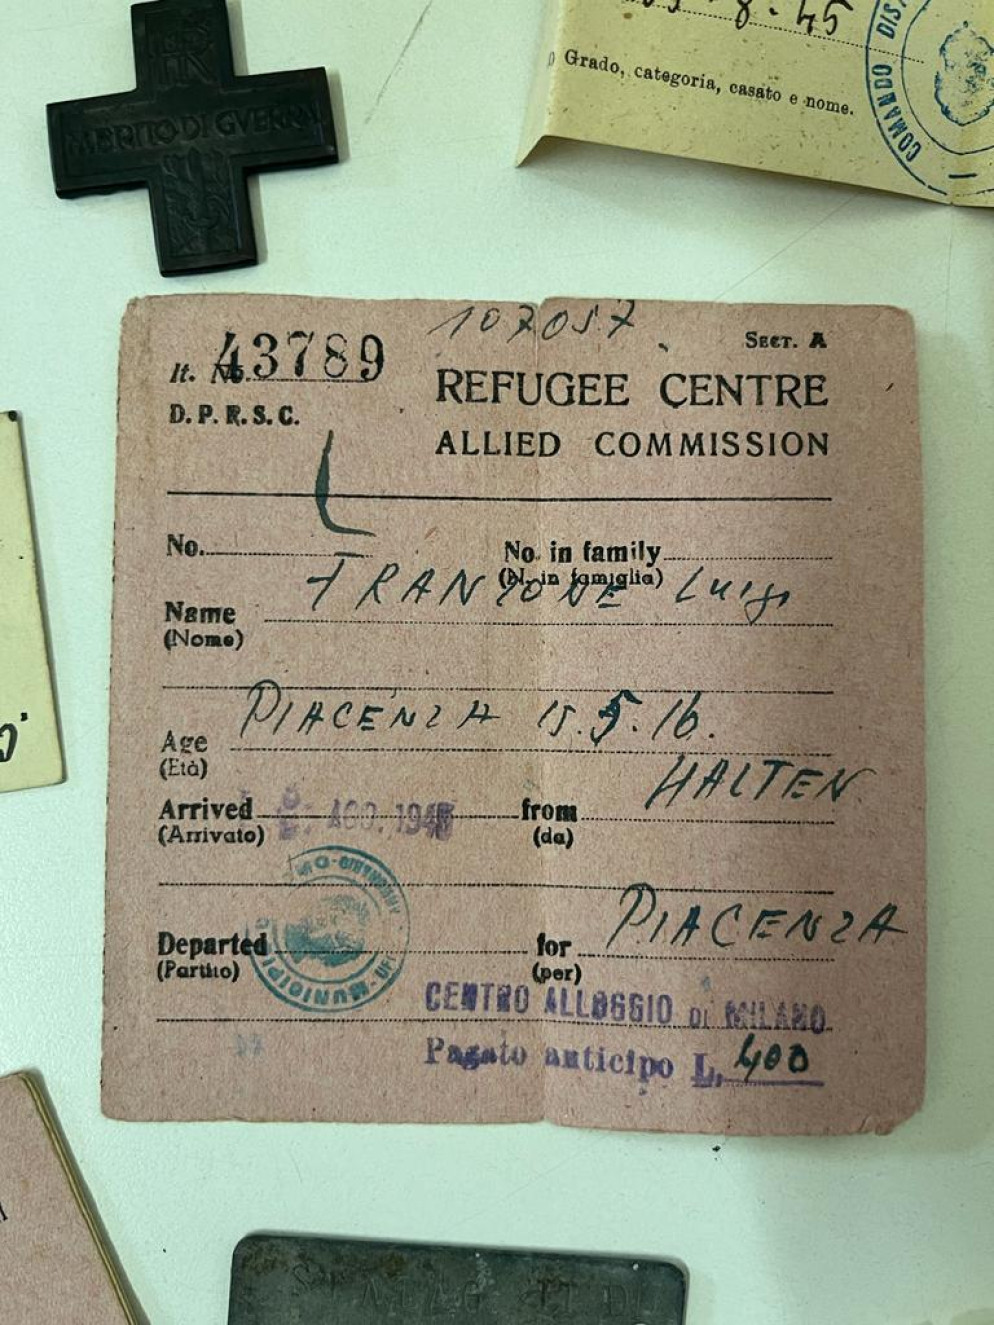 MERITO DI GVERRA
8.45
Grado, categoria, casato e nome.
COMANDO DIS
107057
It. No. 43789
SECT. A
D. P. R. S. C.
REFUGEE CENTRE
ALLIED COMMISSION
No.
No. in family
(N. in famiglia)
Name Luigi
(Nome)
PIACENZA 15.5.16.
Age
(Età)
HALTEN
Arrived AGO. 1945 from
(Arrivato) (da)
PIACENZA
Departed for
(Partito) (per)
CENTRO ALLOGGIO DI MILANO
Pagato anticipo L. 400